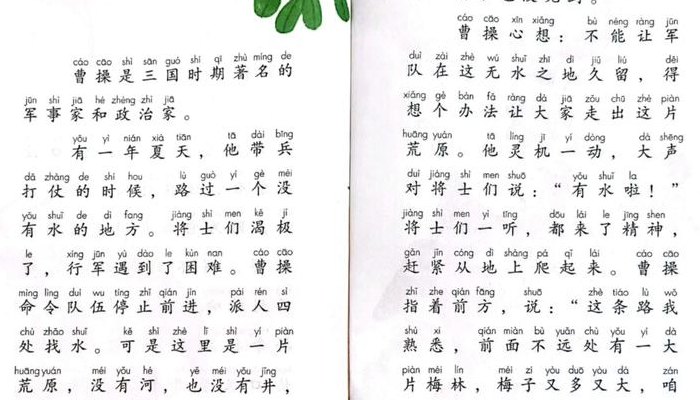 cáo cāo shì sān guó shí qī zhù míng de
曹操是三国时期著名的
jūn shì jiā hé zhèng zhì jiā
军事家和政治家。
yǒu yì nián xià tiān tā dài bīng
有一年夏天，他带兵
dǎ zhàng de shí hou lù guò yí gè méi
打仗的时候，路过一个没
yǒu shuǐ de dì fang jiàng shì men kě jí
有水的地方。将士们渴极
le xíng jūn yù dào le kùn nan cáo cāo
了，行军遇到了困难。曹操
mìng lìng duì wu tíng zhǐ qián jìn pài rén sì
命令队伍停止前进，派人四
chù zhǎo shuǐ kě shì zhè lǐ shì yí piàn
处找水。可是这里是一片
huāng yuán méi yǒu hé yě méi yǒu jǐng
荒原，没有河，也没有井，
cáo cāo xīn xiǎng bù néng ràng jūn
曹操心想：不能让军
duì zài zhè wú shuǐ zhī dì jiǔ liú děi
队在这无水之地久留，得
xiǎng gè bàn fǎ ràng dà jiā zǒu chū zhè piàn
想个办法让大家走出这片
huāng yuán tā líng jī yí dòng dà shēng
荒原。他灵机一动，大声
duì jiàng shì men shuō yǒu shuǐ la
对将士们说：“有水啦！”
jiàng shì men yì tīng dōu lái le jīng shen
将士们一听，都来了精神，
gǎn jǐn cóng dì shàng pá qǐ lái cáo cāo
赶紧从地上爬起来。曹操
zhǐ zhe qián fāng shuō zhè tiáo lù wǒ
指着前方，说：“这条路我
shú xi qián miàn bù yuǎn chù yǒu yí dà
熟悉，前面不远处有一大
piàn méi lín méi zi yòu duō yòu dà zán
片梅林，梅子又多又大，咱